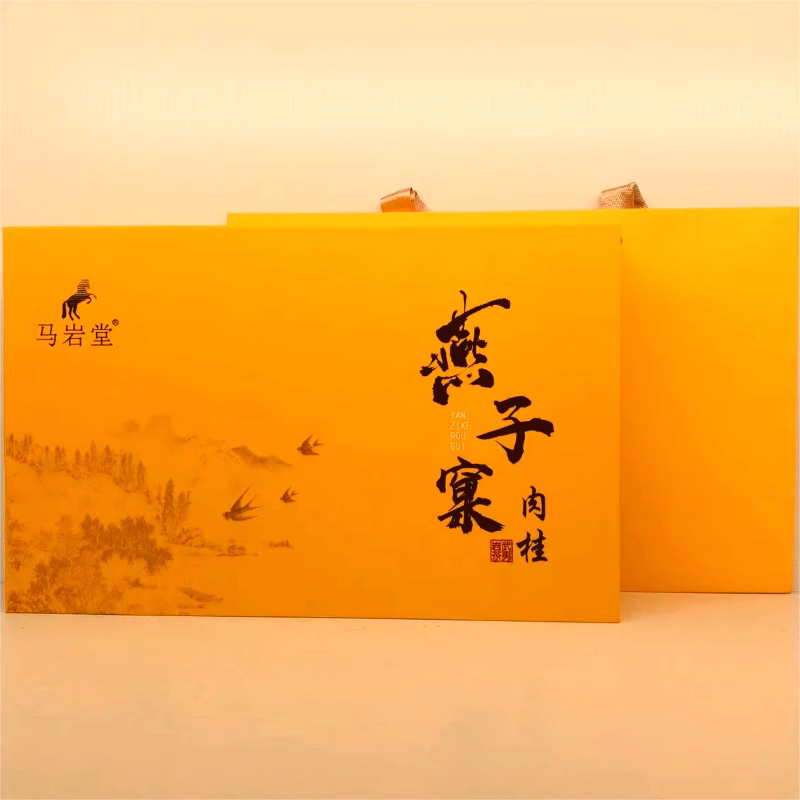 马岩堂®
燕子窠
YAN
ZIKE
ROU
GUI
肉桂
武夷
岩茶